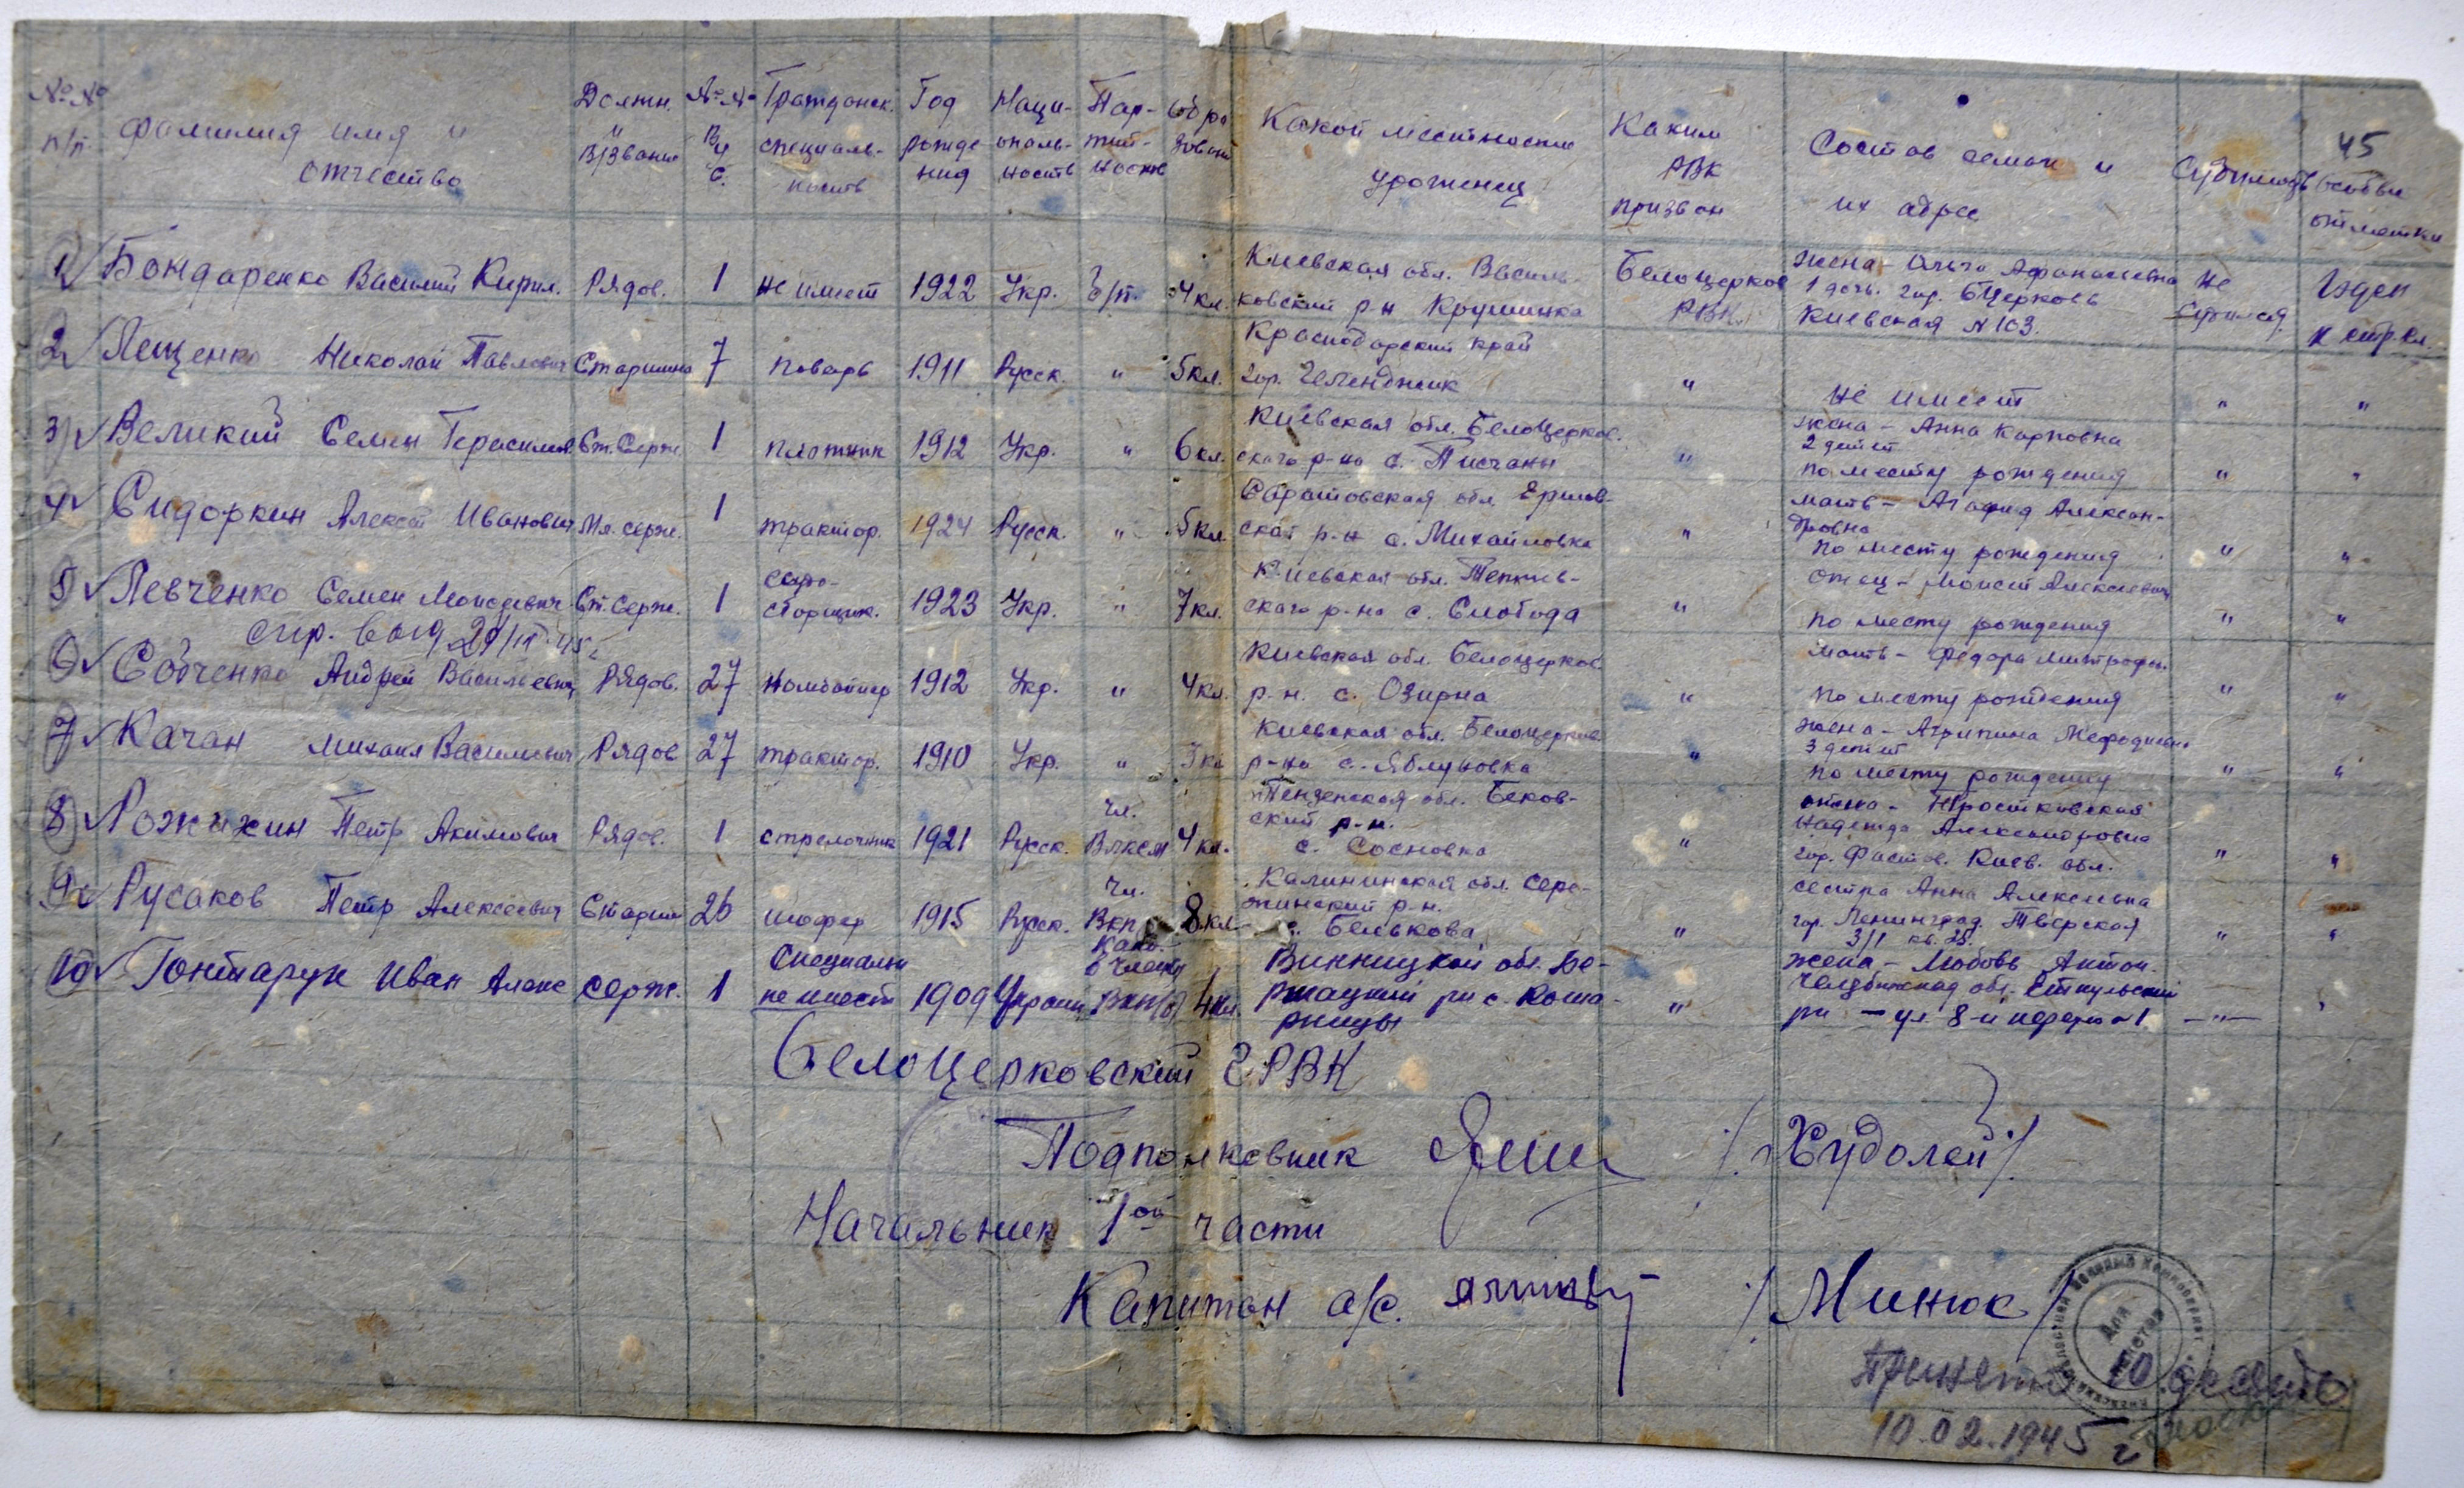 45
№№ п/п
Фамилия имя и отчество
Должн. и в/звание
№№ ВУС
Гражданск. специальность
Год рождения
Национальность
Партийность
Образован
Какой местности уроженец
Каким РВК призван
Состав семьи и их адрес
Судимость
Особые отметки
1 Бондаренко Василий Кирил. Рядов. 1 не имеет 1922 Укр. б/п. 4 кл. Киевская обл. Василь-
ковский р-н Крушинка Белоцерков РВК жена - Ольга Афанасьевна
1 дочь. гор. БЦерковь
Киевская N 103. не судился Годен к стр. сл.
2 Лещенко Николай Павлович Старшина 7 поварь 1911 Русск. " 5 кл. Краснодарский край
гор. Геленджик " не имеет " "
3 Великий Семен Герасимов. Ст. Серж. 1 плотник 1912 Укр. " 6 кл. Киевская обл. Белоцерков.
ского р-на с. Писчаны " жена - Анна Карповна
2 детей
по месту рождения " "
4 Сидоркин Алексей Иванович Мл. серж. 1 трактор. 1924 Русск. " 5 кл. Саратовская обл. Ершов-
ский р-н с. Михайловка " мать - Агафия Алексан-
дровна
по месту рождения " "
5 Левченко Семен Моисеевич Ст. Серж. 1 сборщик. 1923 Укр. " 7 кл. Киевская обл.
ского р-на с. Слобода " отец - Моисей Алексеевич
по месту рождения " "
6 Собченко Андрей Васильевич Рядов. 27 комбайнер 1912 Укр. " 4 кл. Киевская обл. Белоцерков
р-н. с. Озирна " мать - Федора Митрофан.
по месту рождения " "
7 Качан Михаил Васильевич Рядов 27 трактор. 1910 Укр. " 3 кл Киевская обл. Белоцерков.
р-на с. Яблуновка " жена - Агрипина Мефодиевна
3 детей
по месту рождения " "
8 Петр Акимович Рядов. 1 стрелочник 1921 Русск. чл. Влксм 4 кл. Пензенская обл. Беков-
ский р-н.
с. Сосновка "
Надежда Александровна
гор. Фастов. Киев. обл. " "
9 Русаков Петр Алексеевич Старши 26 шофер 1915 Русск. чл. Вкп 8 кл Калининская обл.
р-н.
с. Белькова " сестра Анна Алексеевна
гор. Ленинград. Тверская
3/1 кв. 25. " "
10 Гонтарук Иван Алекс серж. 1 Специальн не имеет 1909 Украин. канд. в члены ВКП/б/ 4 кл. Винницкой обл. Бе-
ршацкий рн с. Коша-
рницы " жена - Любовь Антон.
Челябинская обл. Еткульский
рн - ул. 8-и марта 1 -"- "
Белоцерковский ГРВК
Подполковник /Худолей/.
Начальник 1ой части
Капитан а/с. /Минюк/
Военный Комиссариат
Для пакетов
Принято 10 десять
10.02.1945 г